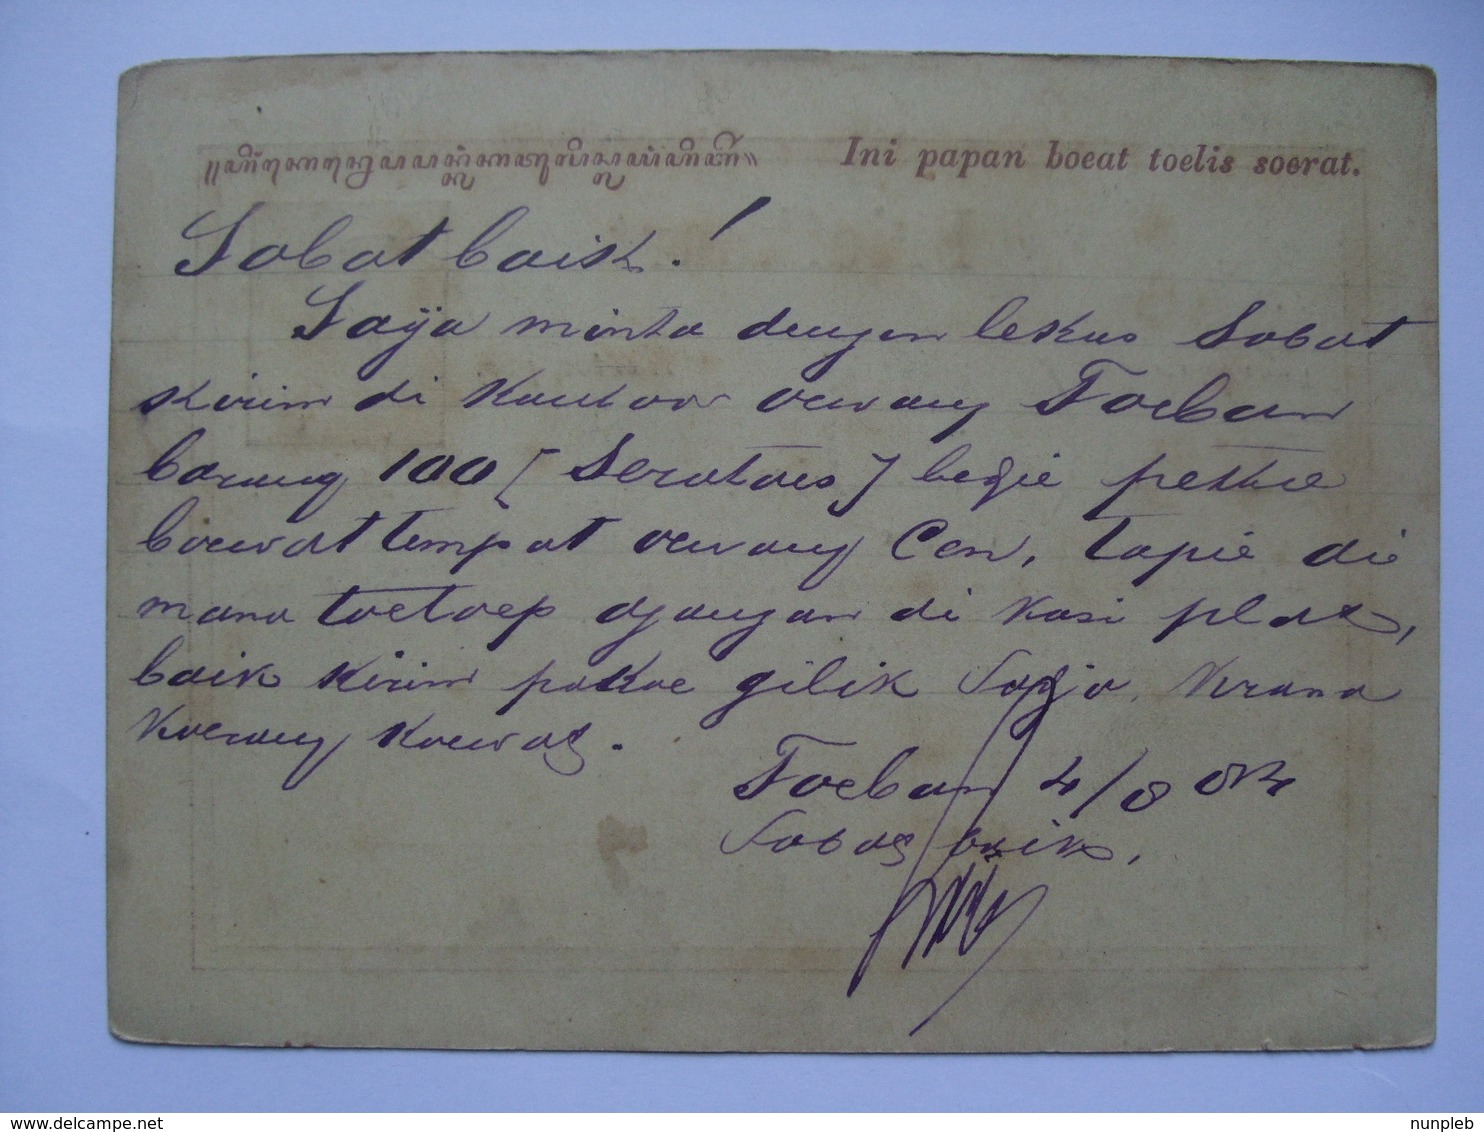 Ini papan boeat toelis soerat.
Sobat baik!
Saija minta dengan lekas Sobat
kirim di kantoor oewang Toeban
barang 100 [Seratoes] bidjie pettie
boewat tempat oewang Cen, tapie di
mana toetoep djangan di kasi plat,
baik kirim pakoe gilik sadja, krana
koerang koewat.
Toeban 4/8 84
Sobat baik,
nunpleb
delcampe.net